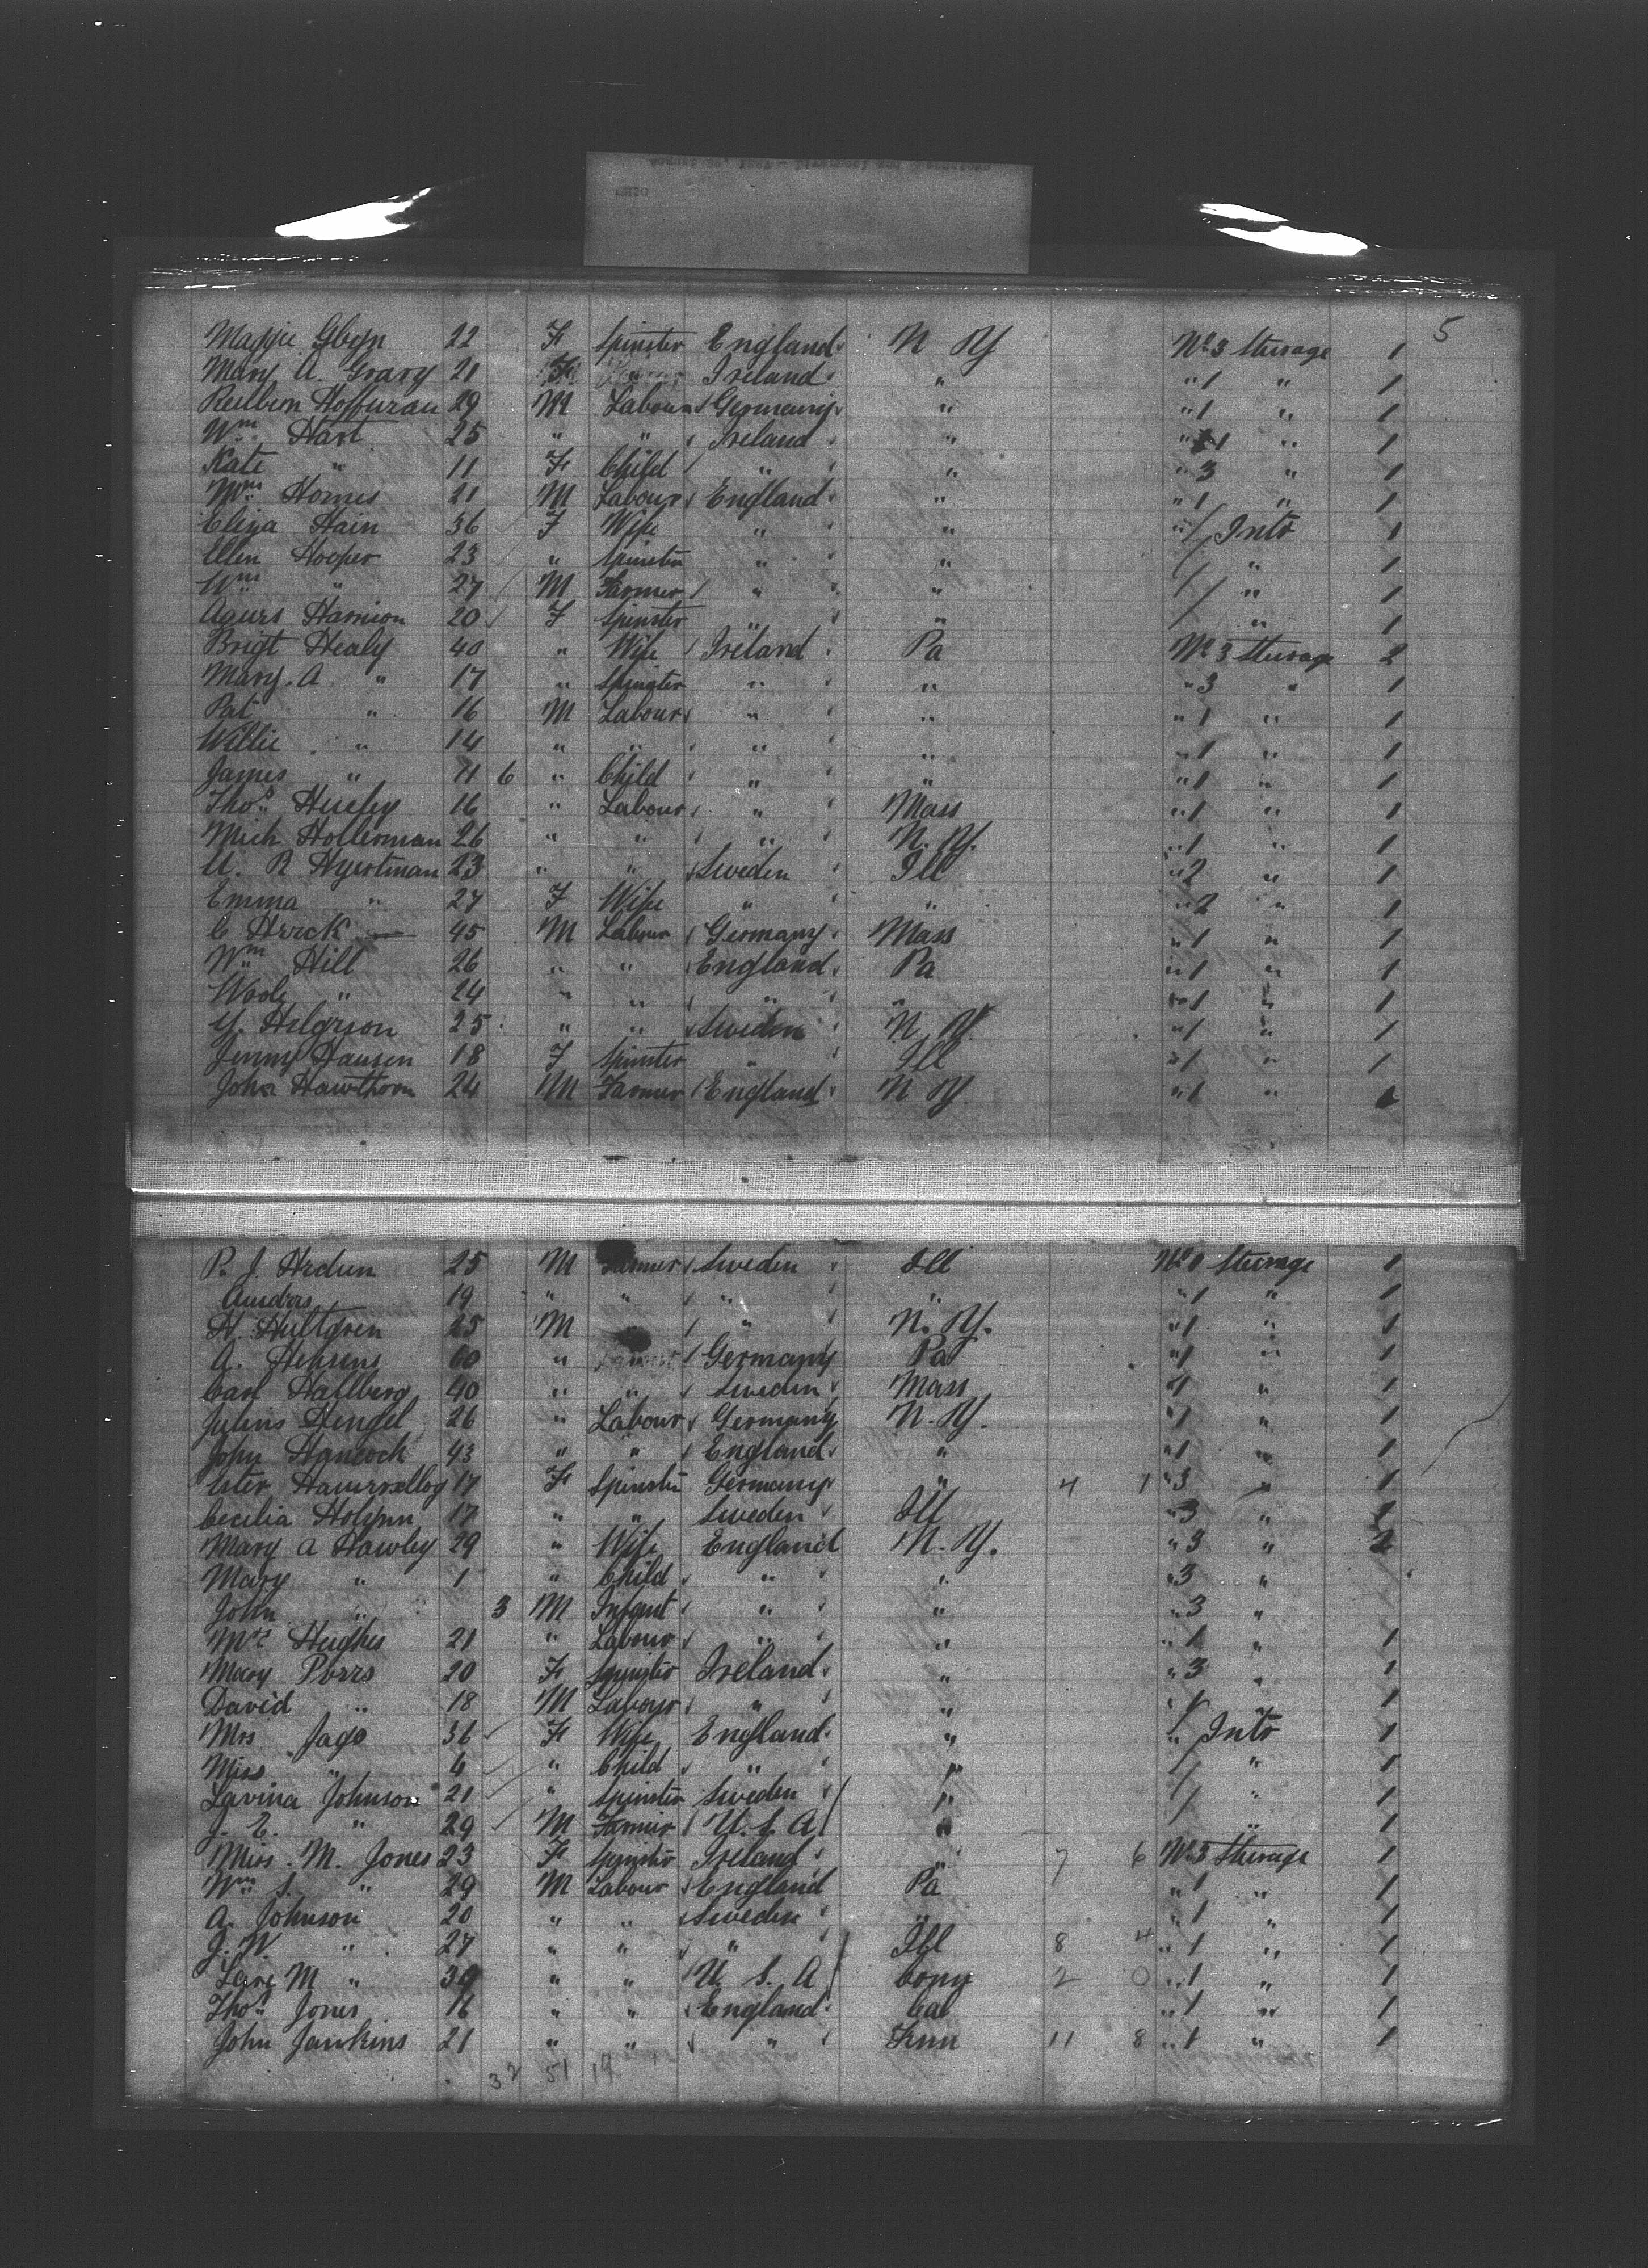 5
Maggie Glyn 22 F Spinster England N Y No 3 Sturage 1
Mary A. Grary 21 F " Ireland " " 1 " 1
Reilbem Hoffuran 29 M Labour Germany " " 1 " 1
Wm Hart 25 " " Ireland " " 1 " 1
Kate " 11 F Child " " " 3 " 1
Wm Homes 21 M Labour England " " 1 " 1
Eliza Hain 36 F Wife " " " / Intr 1
Ellen Hooper 23 " Spinster " " / " 1
Wm " 27 M Farmer " " / " 1
Agnes Harrison 20 F Spinster " " / " 1
Brigt Healy 40 " Wife Ireland Pa No 3 Sturage 2
Mary. A " 17 " Spinster " " " 3 " 1
Pat " 16 M Labour " " " 1 " 1
Willie " 14 " " " " " 1 " 1
James " 11 6 " Child " " " 1 " 1
Thos Husley 16 " Labour " Mass " 1 " 1
Mich Hollerman 26 " " " N. Y. " 1 " 1
A. R Hyertman 23 " " Sweden Ill " 2 " 1
Emma " 27 F Wife " " " 2 " 1
C Herck 45 M Labour Germany Mass " 1 " 1
Wm Hill 26 " " England Pa " 1 " 1
" 24 " " " " " 1 " 1
Y. Helgrson 25 " " Sweden N. Y. " 1 " 1
Jenny Hansen 18 F Spinster " Ill " 1 " 1
John Hawthorn 24 M Farmer England N Y " 1 " 1
P. J. Hedun 25 M Farmer Sweden Ill No 1 Sturage 1
Anders 19 " " " " " 1 " 1
H. Hultgren 25 M " N. Y. " 1 " 1
A. Hehsens 60 " " Germany Pa " 1 " 1
Carl Hallberg 40 " " Sweden Mass " 1 " 1
Julius Hengel 26 " Labour Germany N. Y. " 1 " 1
John Hancock 43 " " England " " 1 " 1
Ester 17 F Spinster Germany " 4 1 " 3 " 1
Cecilia Holynn 17 " " Sweden Ill " 3 " 1
Mary A Hawley 29 " Wife England N. Y. " 3 " 2
Mary " 1 " Child " " " 3 "
John " 3 M Infant " " " 3 "
Hughes 21 " Labour " " " 1 " 1
Mary Pvrrs 20 F Spinster Ireland " " 3 " 1
David " 18 M Labour " " " 1 " 1
Mrs Jago 36 F Wife England " / Intr 1
Miss " 4 " Child " " / " 1
Lavina Johnson 21 " Spinster Sweden " / " 1
J. E. " 29 M Farmer U. S. A " / " 1
Miss. M. Jones 23 F Spinster Ireland " 7 6 No 3 Sturage 1
Wm S. " 29 M Labour England Pa " 1 " 1
A. Johnson 20 " " Sweden " " 1 " 1
J. W. " 27 " " " Ill 8 4 " 1 " 1
M " 39 " " U. S. A Conn 2 0 " 1 " 1
Thos Jones 16 " " England Cal " 1 " 1
John Jankins 21 " " " Tenn 11 8 " 1 " 1
32 51 19